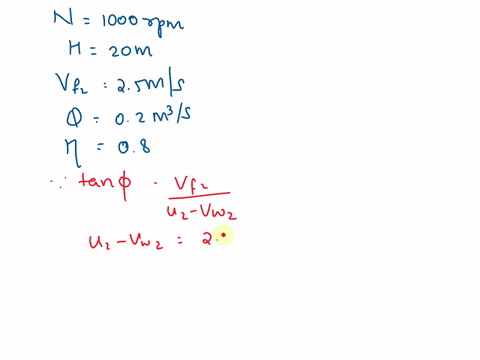 N = 1000 rpm
H = 20m
Vf₂ = 2.5m/s
Q = 0.2 m³/s
η = 0.8
∵ tanϕ = Vf₂ / u₂-Vw₂
u₂-Vw₂ = 2.